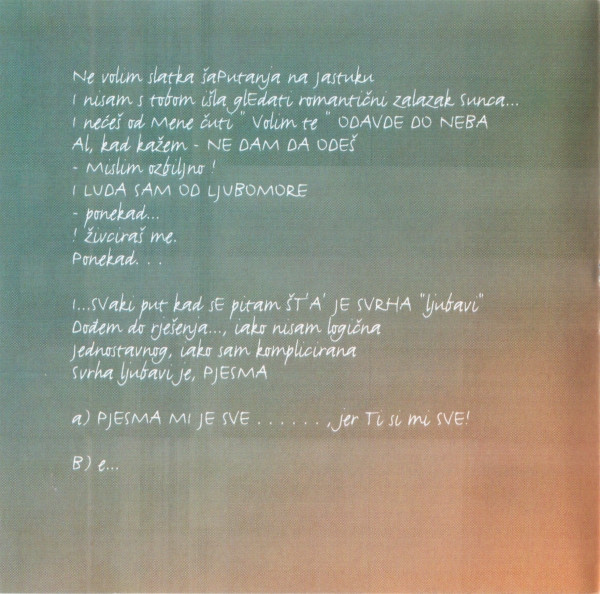 Ne volim slatka šaPutanja na Jastuku
I nisam s tobom išla glEdati romantični zalazak Sunca...
I nećeš od Mene čuti " Volim te " ODAVDE DO NEBA
Al, kad kažem - NE DAM DA ODEŠ
- Mislim ozbiljno !
I LUDA SAM OD LJUBOMORE
- ponekad...
! živciraš me.
Ponekad. . .
I...SVaki put kad sE pitam ŠT'A' JE SVRHA "ljubavi"
Dođem do rješenja..., iako nisam logična
Jednostavnog, iako sam komplicirana
Svrha ljubavi je, PJESMA
a) PJESMA MI JE SVE . . . . . . , jer Ti si mi SVE!
B) e...